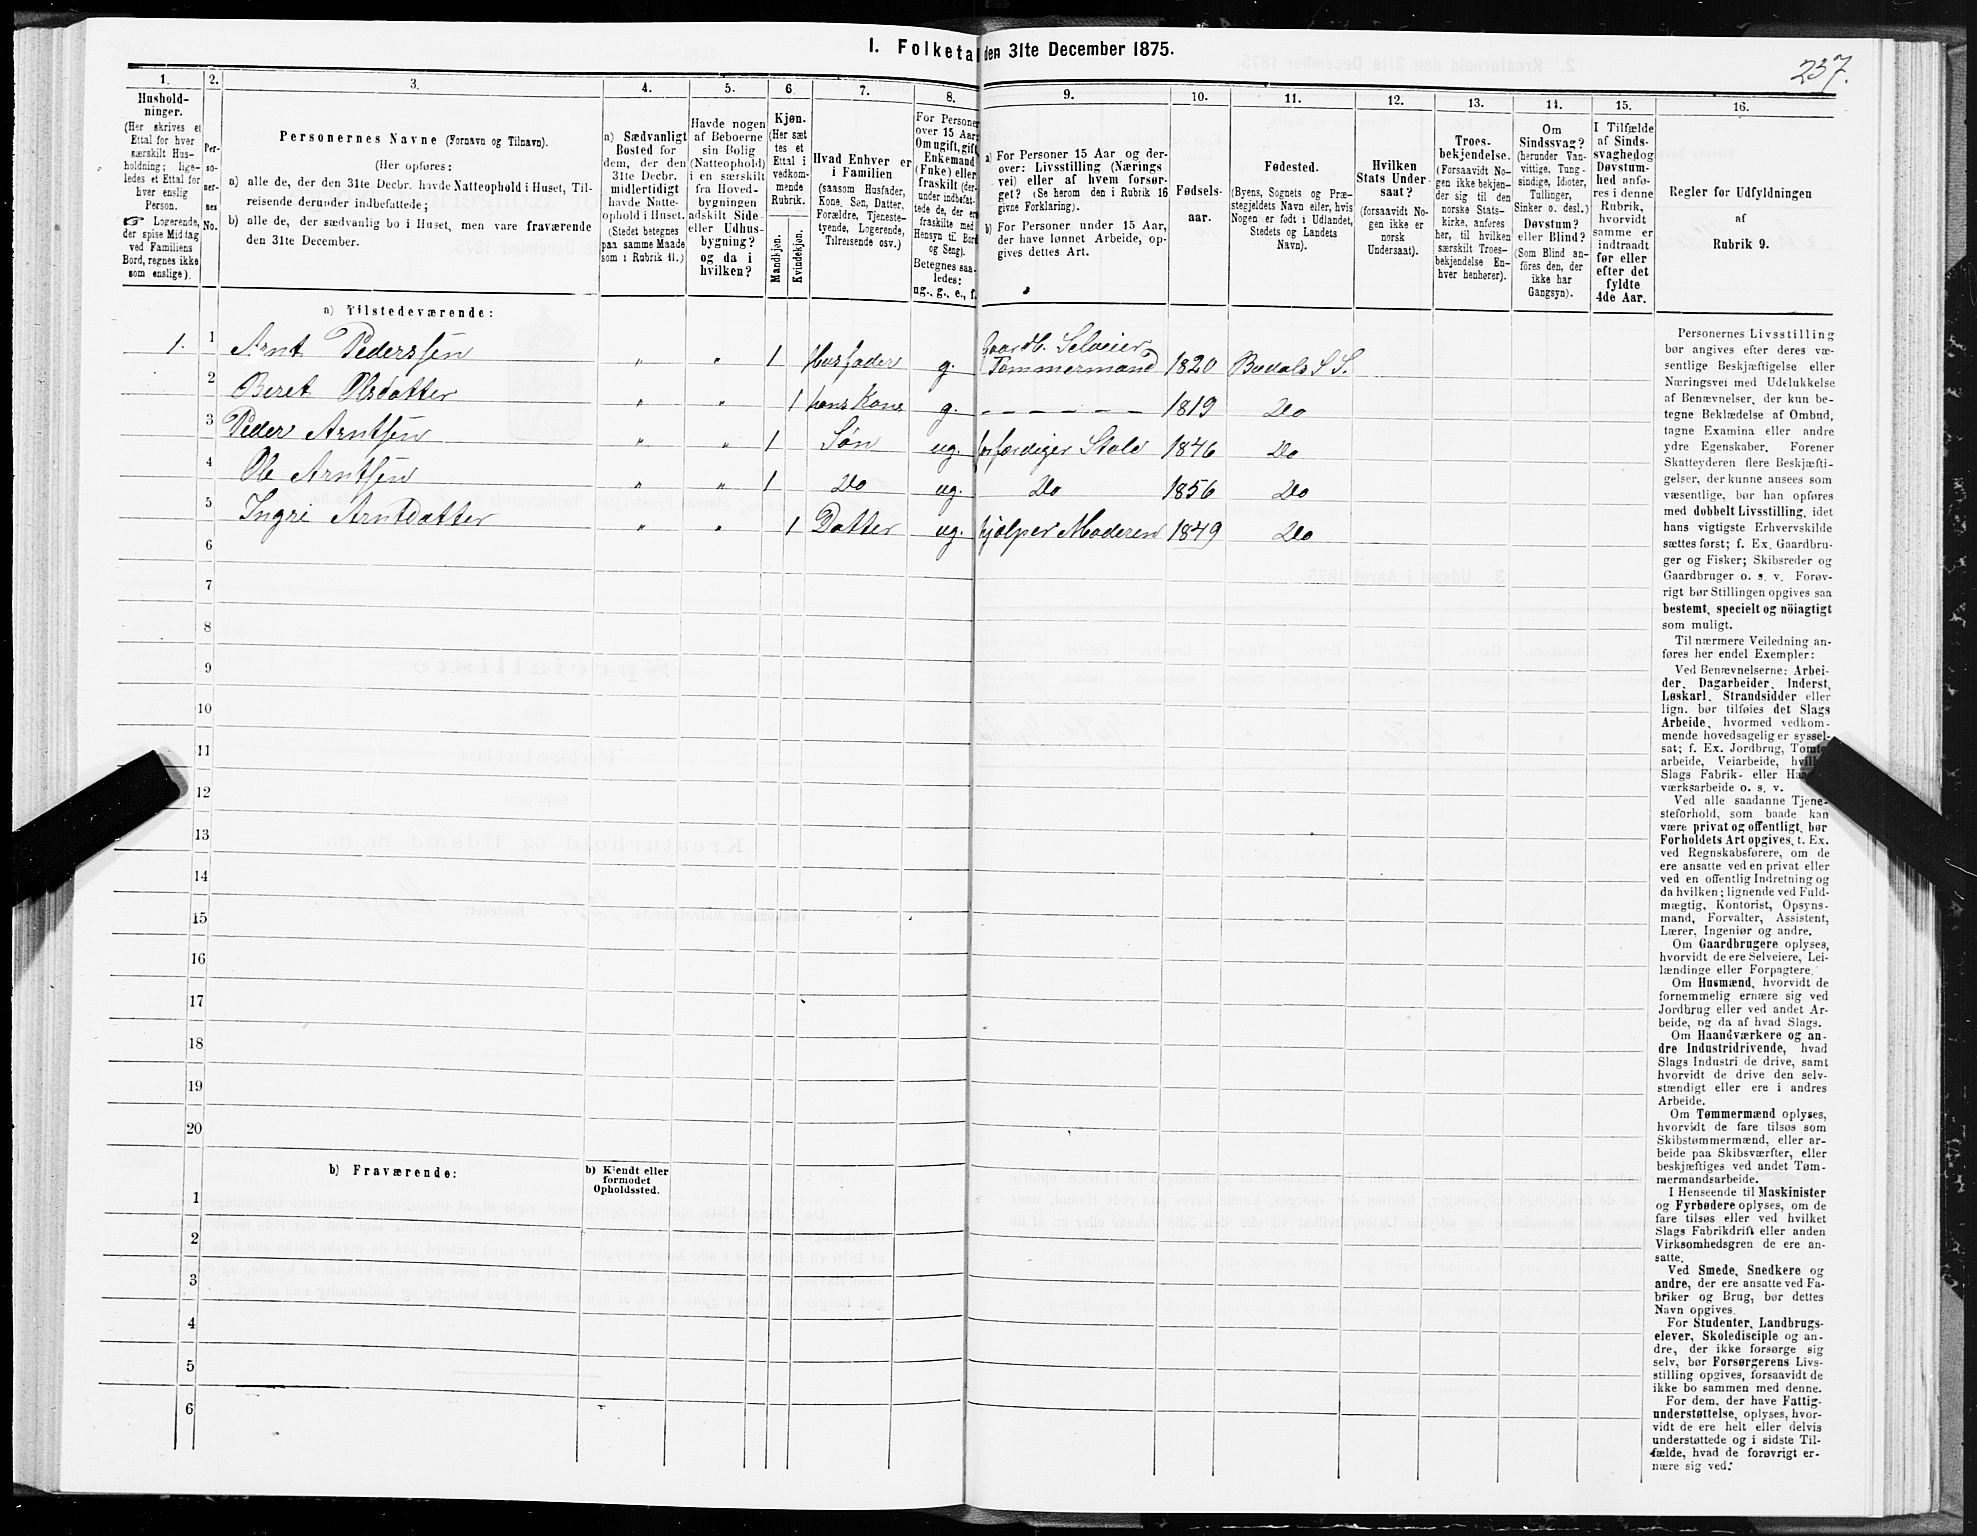 I. Folketal den 31te December 1875.
237.
1. 2. 3. 4. 5. 6. 7. 8. 9. 10. 11. 12. 13. 14. 15. 16.
Hushold-
ninger.
(Her skrives et
Ettal for hver
særskilt Hus-
holdning; lige-
ledes et Ettal for
hver enslig
Person.
☞ Logerende,
der spise Middag
ved Familiens
Bord, regnes ikke
som enslige).
Per-
so-
ner-
nes
No.
Personernes Navne (Fornavn og Tilnavn).
(Her opføres:
a) alle de, der den 31te Decbr. havde Natteophold i Huset, Til-
reisende derunder indbefattede;
b) alle de, der sædvanlig bo i Huset, men vare fraværende
den 31te December.
a) Sædvanligt
Bosted for
dem, der den
31te Decbr.
midlertidigt
havde Natte-
ophold i Huset.
(Stedet betegnes
paa samme Maade
som i Rubrik 11.)
Havde nogen
af Beboerne
sin Bolig
(Natteophold)
i en særskilt
fra Hoved-
bygningen
adskilt Side-
eller Udhus-
bygning?
og da i
hvilken?
Kjøn.
(Her sæt
tes et
Ettal i
vedkom-
mende
Rubrik.
Mandkjøn.
Kvindekjøn.
Hvad Enhver er
i Familien
(saasom Husfader,
Kone, Søn, Datter,
Forældre, Tjeneste-
tyende, Logerende,
Tilreisende osv.)
For Personer
over 15 Aar:
Om ugift, gift,
Enkemand
(Enke) eller
fraskilt (der-
under indbefat-
tede de, der ere
fraskilte med
Hensyn til Bord
og Seng).
Betegnes saa-
ledes:
ug., g., e., f.
a) For Personer 15 Aar og der-
over: Livsstilling (Nærings
vei) eller af hvem forsør-
get? (Se herom den i Rubrik 16
givne Forklaring).
b) For Personer under 15 Aar,
der have lønnet Arbeide, op-
gives dettes Art.
Fødsels-
aar.
Fødested.
(Byens, Sognets og Præ-
stegjeldets Navn eller, hvis
Nogen er født i Udlandet,
Stedets og Landets
Navn).
Hvilken
Stats Under-
saat?
(forsaavidt No-
gen ikke er
norsk
Undersaat).
Troes-
bekjendelse.
(Forsaavidt No-
gen ikke bekjen-
der sig til den
norske Stats-
kirke, anføres
her, til hvilken
særskilt Troes-
bekjendelse En-
hver henhører).
Om
Sindssvag?
(herunder Van-
vittige, Tung-
sindige, Idioter,
Tullinger,
Sinker o. desl.)
Døvstum?
eller Blind?
(Som Blind an-
føres den, der
ikke har
Gangsyn).
I Tilfælde
af Sinds-
svaghed og
Døvstum-
hed anfø-
res i denne
Rubrik,
hvorvidt
samme er
indtraadt
før eller
efter det
fyldte
4de Aar.
Regler for Udfyldningen
af
Rubrik 9.
a) Tilstedeværende:
1. 1 Arnt Pederssen " " 1 Husfader g. Gaardb. Selveier Tømmermand 1820 Budals S. S.
2 Beret Olsdatter " " 1 hans Kone g. – – – – – – 1819 Do
3 Peder Arntsen " " 1 Søn ug. forfærdiger Stole 1846 Do
4 Ole Arntsen " " 1 Do ug. Do 1856 Do
5 Ingri Arntdatter " " 1 Datter ug. hjælper Moderen 1849 Do
6
7
8
9
10
11
12
13
14
15
16
17
18
19
20
b) Fraværende:
b) Kjendt eller
formodet
Opholdssted.
1
2
3
4
5
6
Personernes Livsstilling
bør angives efter deres væ-
sentlige Beskjæftigelse eller
Næringsvei med Udelukkelse
af Benævnelser, der kun be-
tegne Beklædelse af Ombud,
tagne Examina eller andre
ydre Egenskaber. Forener
Skatteyderen flere Beskjæfti-
gelser, der kunne ansees som
væsentlige, bør han opføres
med dobbelt Livsstilling, idet
hans vigtigste Erhvervskilde
sættes først; f. Ex. Gaardbru-
ger og Fisker; Skibsreder og
Gaardbruger o. s. v. Forøv-
rigt bør Stillingen opgives saa
bestemt, specielt og nöiagtigt
som muligt.
Til nærmere Veiledning an-
føres her endel Exempler:
Ved Benævnelserne: Arbei-
der, Dagarbeider, Inderst,
Løskarl, Strandsidder eller
lign. bør tilføies det Slags
Arbeide, hvormed vedkom-
mende hovedsagelig er syssel-
sat; f. Ex. Jordbrug, Tomte-
arbeide, Veiarbeide, hvilket
Slags Fabrik- eller Haand-
værksarbeide o. s. v.
Ved alle saadanne Tjene-
steforhold, som baade kan
være privat og offentligt, bør
Forholdets Art opgives, t. Ex.
ved Regnskabsførere, om de
ere ansatte ved en privat eller
ved en offentlig Indretning og
da hvilken; lignende ved Fuld-
mægtig, Kontorist, Opsyns-
mand, Forvalter, Assistent,
Lærer, Ingeniør og andre.
Om Gaardbrugere oplyses,
hvorvidt de ere Selveiere, Lei-
lændinge eller Forpagtere.
Om Husmænd, hvorvidt de
fornemmelig ernære sig ved
Jordbrug eller ved andet Ar-
beide, og da af hvad Slags.
Om Haandværkere og an-
dre Industridrivende, hvad
Slags Industri de drive, samt
hvorvidt de drive den selv-
stændigt eller ere i andres
Arbeide.
Om Tømmermænd oplyses,
hvorvidt de fare tilsøs som
Skibstømmermænd, eller ar-
beide paa Skibsværfter, eller
beskjæftiges ved andet Tøm-
mermandsarbeide.
I Henseende til Maskinister
og Fyrbødere oplyses, om de
fare tilsøs eller ved hvilket
Slags Fabrikdrift eller anden
Virksomhedsgren de ere an-
satte.
Ved Smede, Snedkere og
andre, der ere ansatte ved Fa-
briker og Brug, bør dettes
Navn opgives.
For Studenter, Landbrugs-
elever, Skoledisciple og an-
dre, der ikke forsørge sig
selv, bør Forsørgerens Livs-
stilling opgives, forsaavidt de
ikke bo sammen med denne.
For dem, der have Fattig-
understøttelse, oplyses, hvor-
vidt de ere helt eller delvis
understøttede og i sidste Til-
fælde, hvad de forøvrigt er-
nære sig ved.